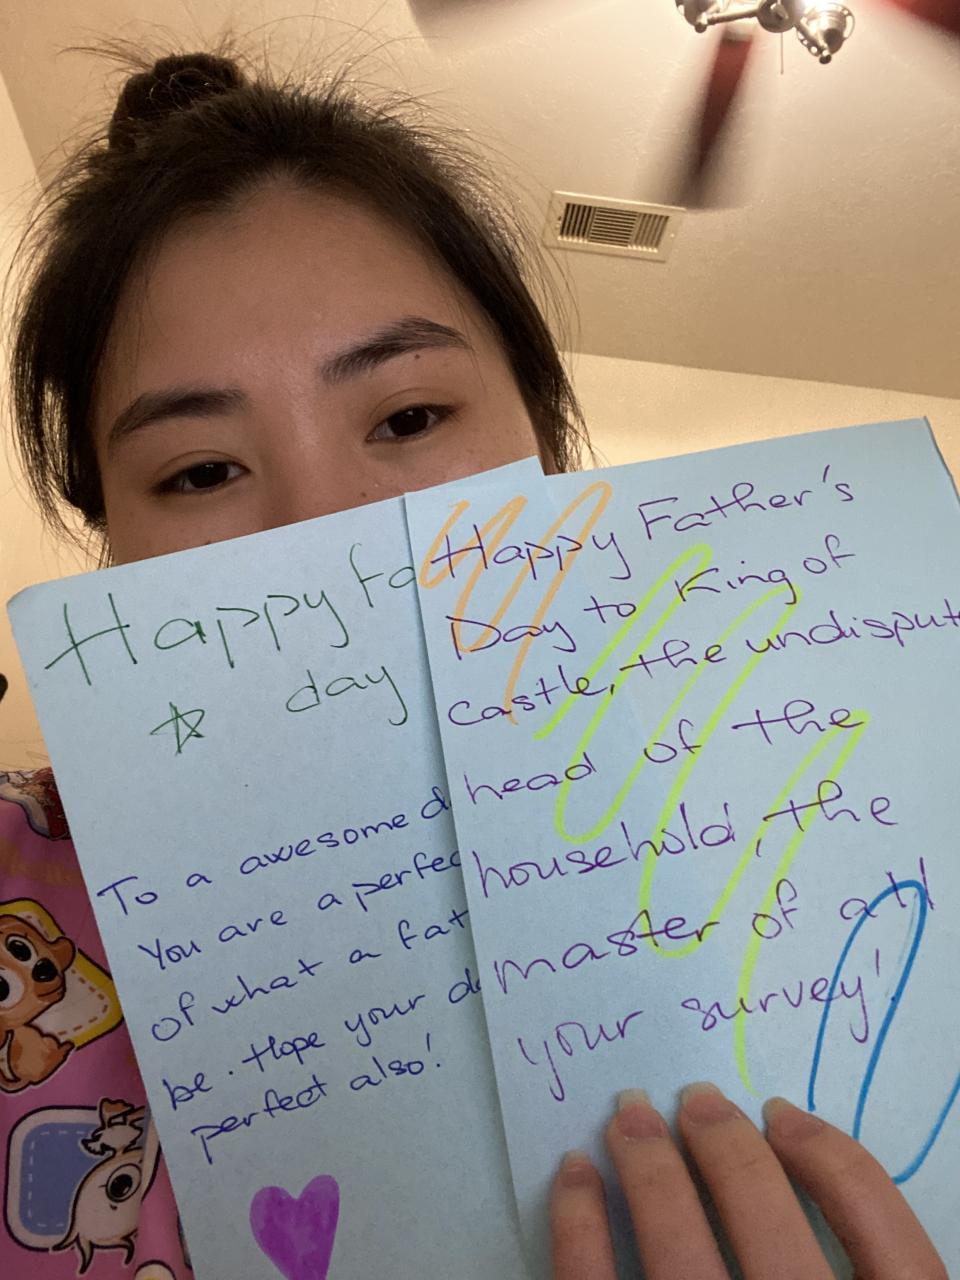 Happy fa
day
To a awesome d
You are a perfec
of what a fat
be. Hope your da
perfect also!
Happy Father's
Day to King of
Castle, the undispute
head of the
household, the
master of all
your survey!